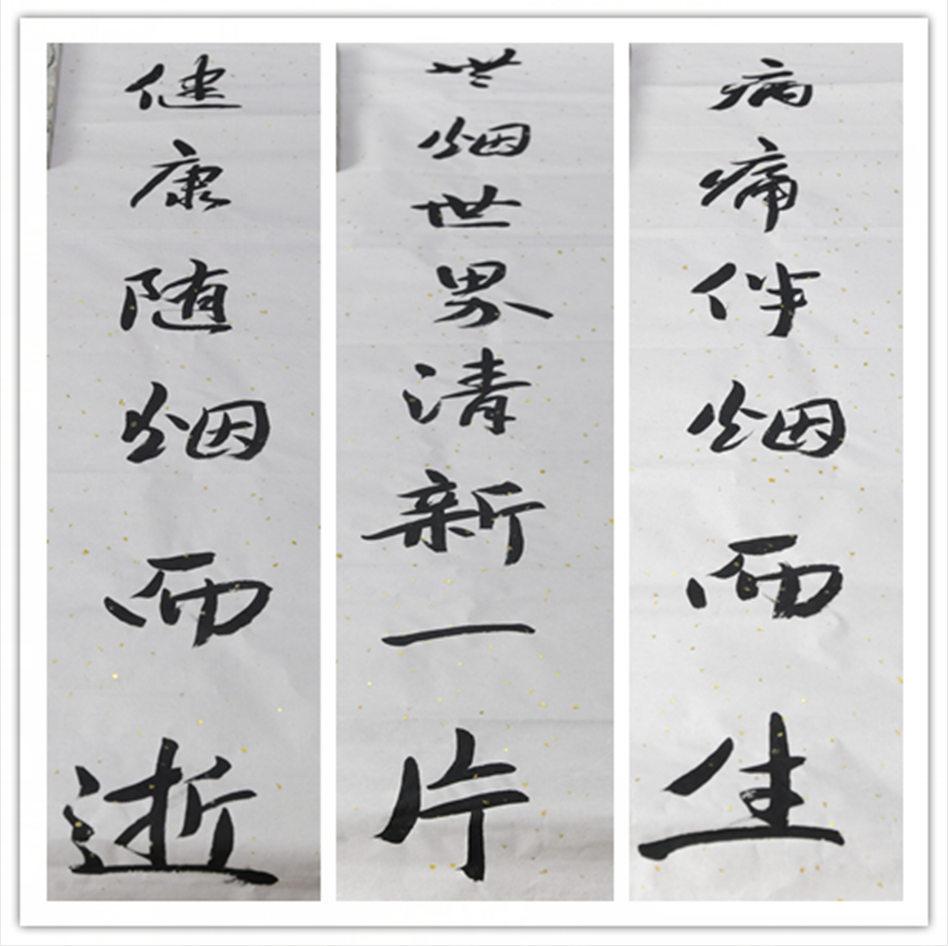 病痛伴烟而生
無烟世界清新一片
健康随烟而逝